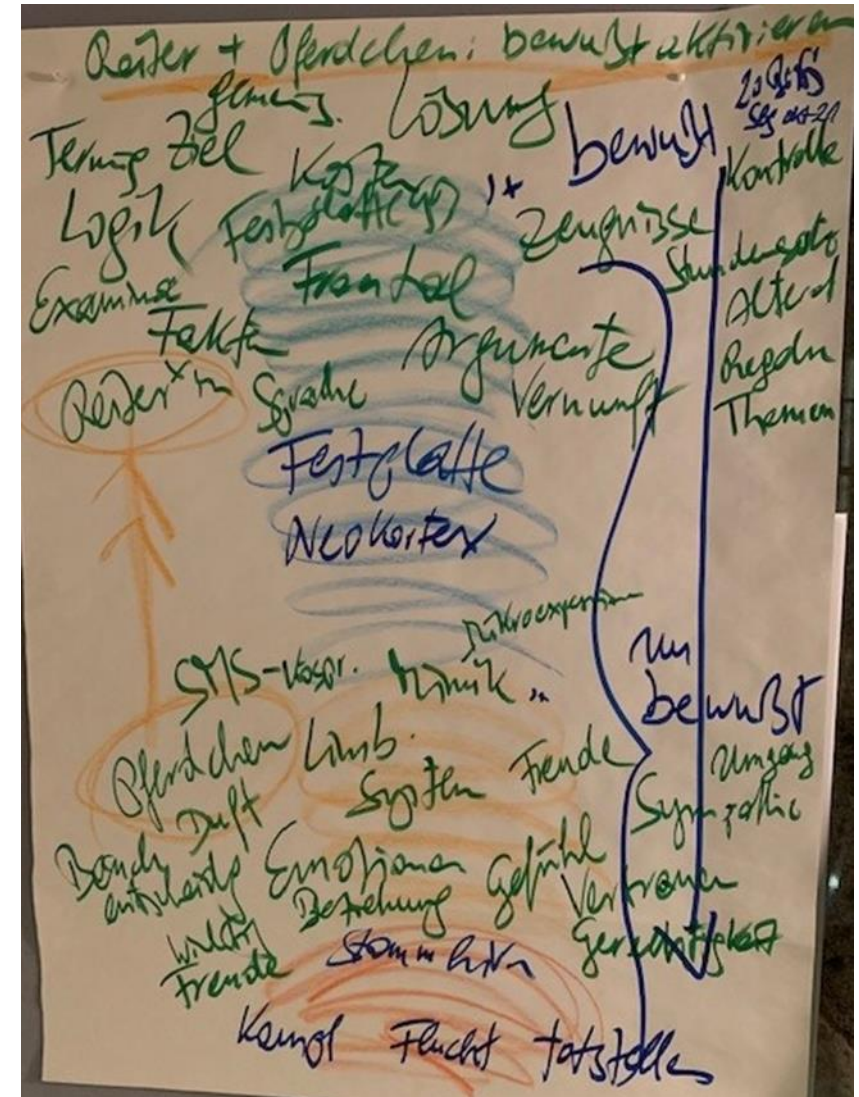 Reiter + Pferdchen: bewußt aktivieren
gemeins. Lösung
Termine Ziel
bewußt
Kosten
Kontrolle
Logik
Zeugnisse
Stundensatz
Examina
Frontal
Fakten
Argumente
Regeln
Reiter*in Sprache
Vernunft
Themen
Festplatte
Neokortex
Mikroexpression
SMS-
Mimik
un
bewußt
Pferdchen Limb.
System Freude
Umgang
Duft
Sympathie
Bauch
entscheidg
Emotionen Gefühl
Beziehung
Vertrauen
wichtig
Freude
Stammhirn
Gerechtigkeit
Kampf Flucht totstellen